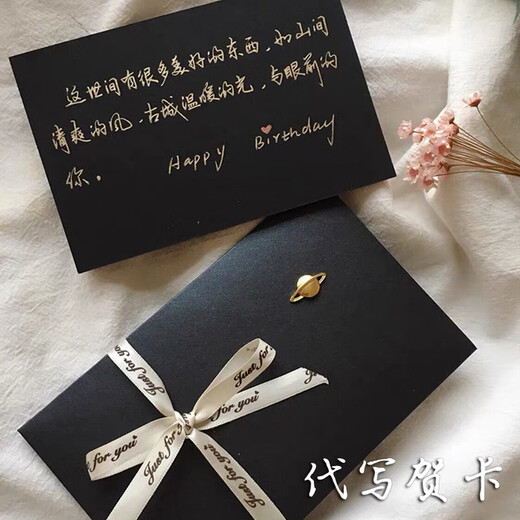 这世间有很多美好的东西，如山间
清爽的风，古城温暖的光，与眼前的
你。
Happy Birthday
Just for you
Just for
for you
for you
Just for you
Just for you
代写贺卡